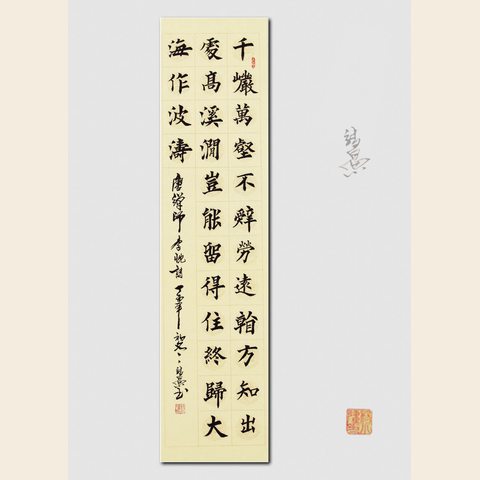 千巗萬壑不辤勞遠看方知出
處高溪澗豈能留得住終歸大
海作波濤 唐禪師李忱詩 丁酉年